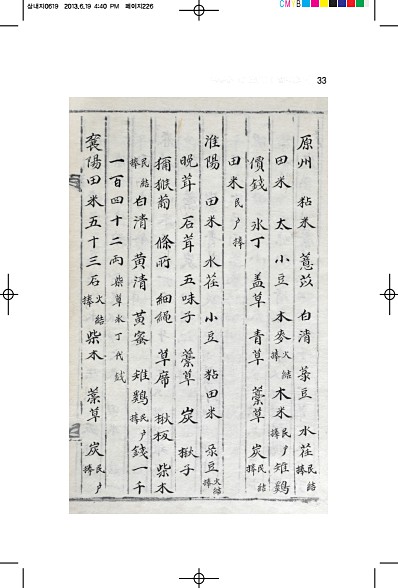 삼내지0619 2013.6.19 4:40 PM 페이지226
CMYB
33
原州 粘米 薏苡 白清 菉豆 水荏民結捧
田米 太 小豆 木麥火結捧 木米民戶捧 雉鷄
價錢 氷丁 盖草 青草 藁草 炭民結捧
田米民戶捧
淮陽 田米 水荏 小豆 粘田米 菉豆火結捧
晚茸 石茸 五味子 藁草 炭 楸子
獼猴萄 條所 細繩 草席 楸板 柴木
民結捧 白清 黃清 黃蜜 雉鷄民戶捧 錢一千
一百四十二兩柴草氷丁代錢
襄陽田米五十三石火結捧 柴木 藁草 炭民戶捧